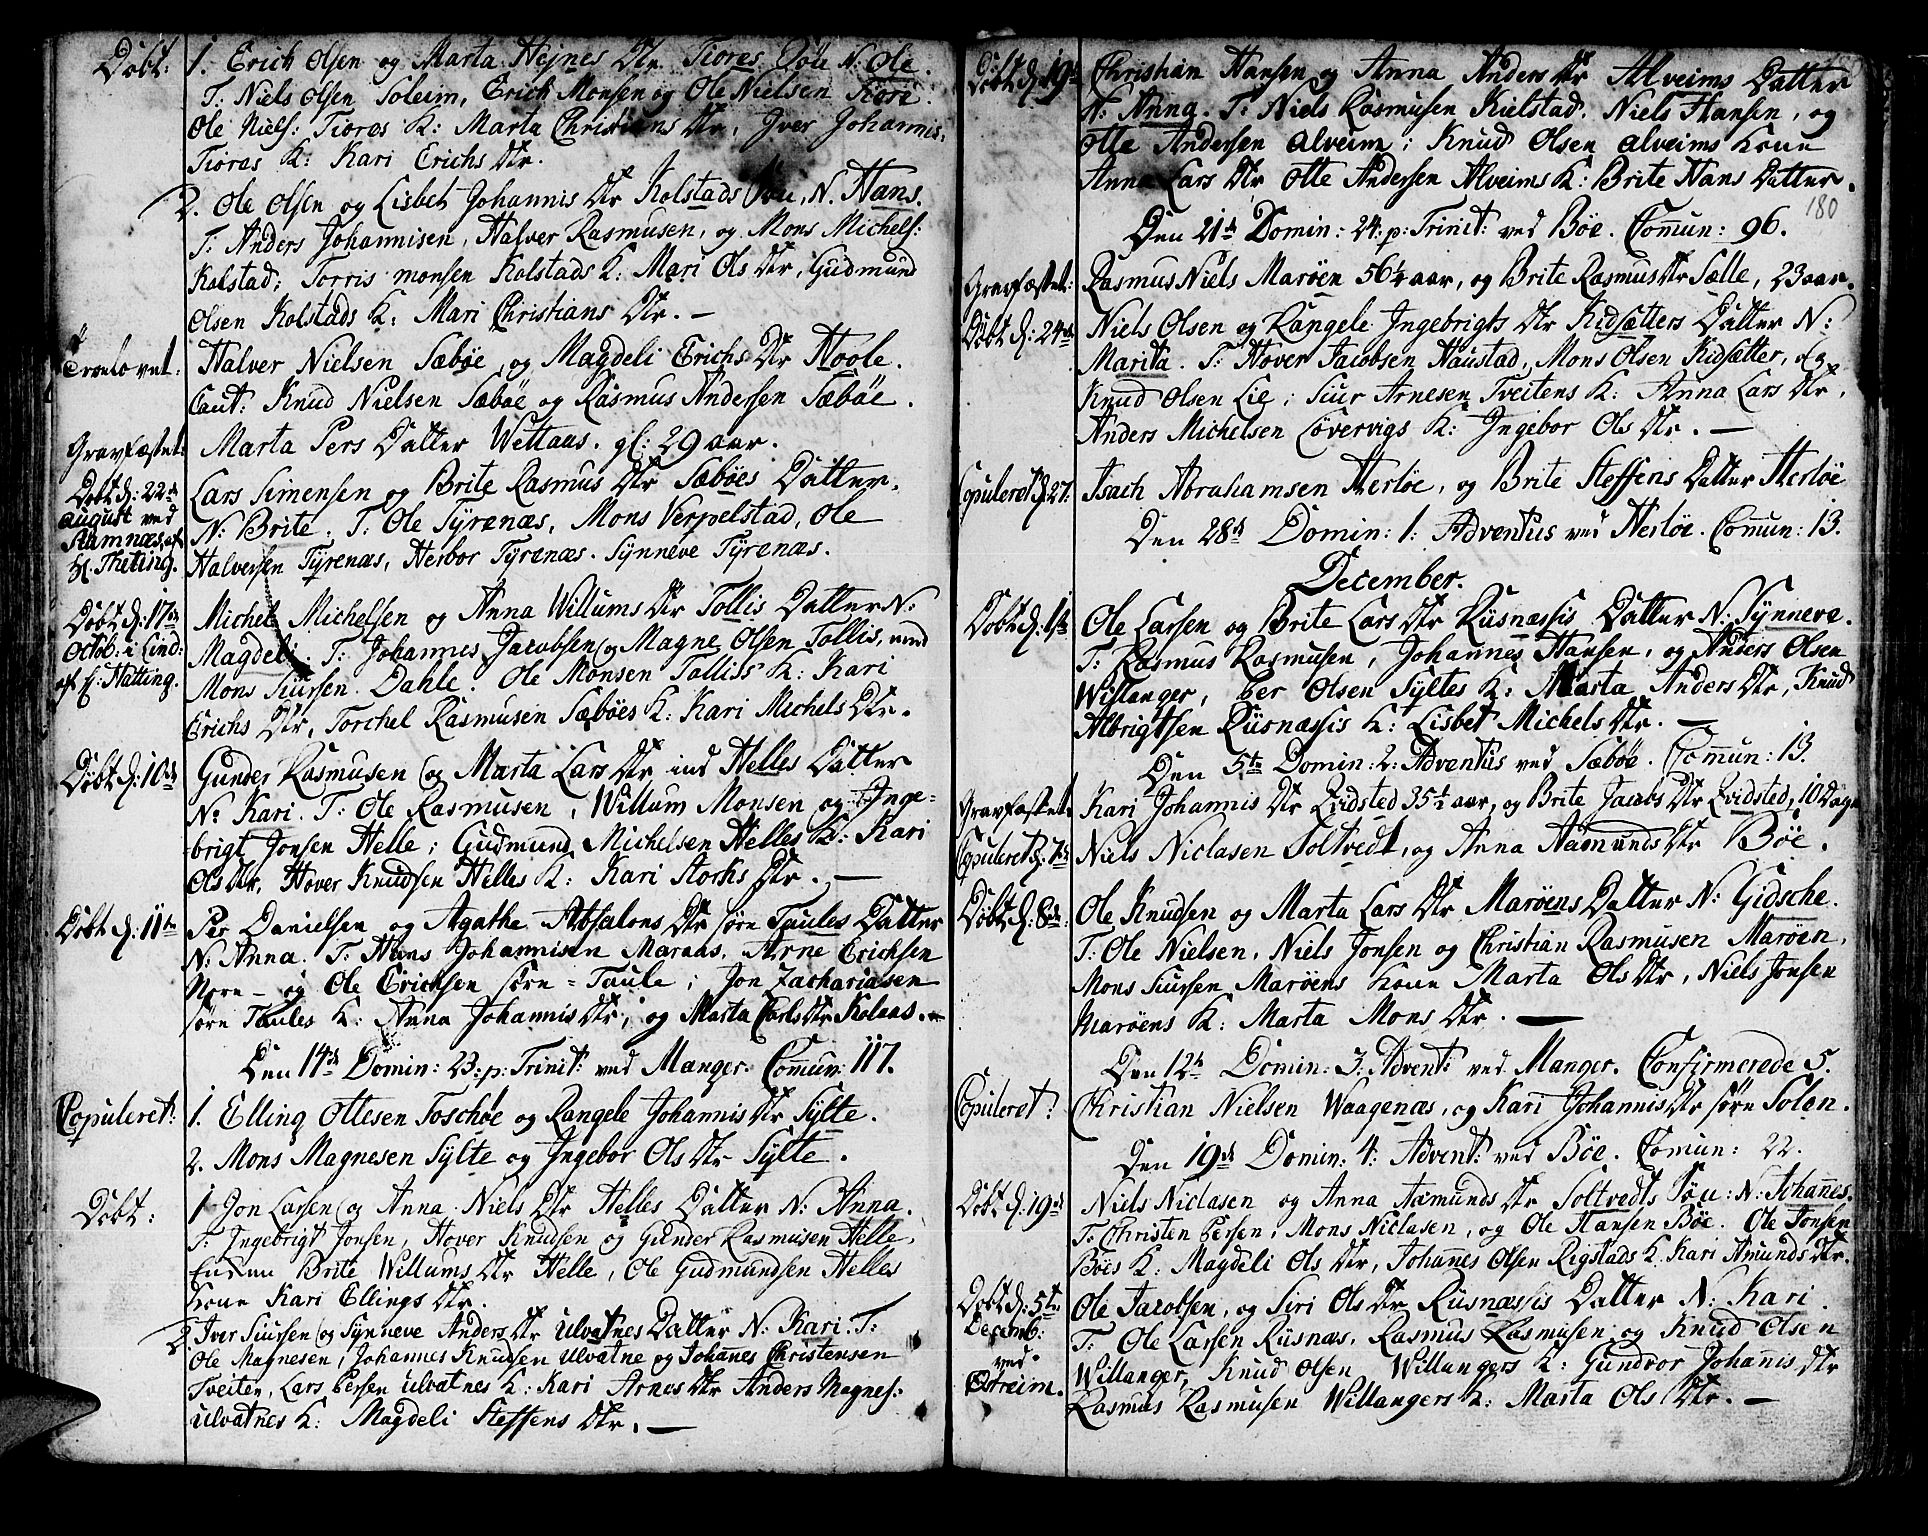 Døbt: 1. Erich Olsen og Marta Hejnes Dtr Fioras Søn N: Ole.
T: Niels Olsen Soleim, Erich Monsen og Ole Nielsen Fiore:
Ole Niels: Fioras K: Marta Christians Dtr, Iver Johannis:
Fioras K: Kari Erichs Dtr.
2. Ole Olsen og Lisbet Johannis Dtr Kolstads Søn, N. Hans.
T: Anders Johannisen, Halver Rasmusen, og Mons Michels:
Kolstad; Torris Monsen Kolstads K: Mari Ols Dtr, Gudmund
Olsen Kolstads K: Mari Christians Dtr. —
Trolovet: Halver Nielsen Sæbøe og Magdeli Erichs Dtr Hoole.
Caut: Knud Nielsen Sæbøe og Rasmus Andersen Sæbøe.
Gravfæstet: Marta Pers Datter Wettaas. gl: 29 aar.
Døbt d: 22de Lars Simensen og Brite Rasmus Dtr Sæbøes Datter.
august ved N: Brite. T: Ole Tyrenæs, Mons Verpelstad, Ole
Stamnæs, af Halversen Tyrenæs, Herbor Tyrenæs. Synneve Tyrenæs.
H. Theting.
Døbt d: 17de Michel Michelsen og Anna Willums Dtr Tollis Datter N:
Octob: i Lind: Magdeli. T: Johannes Jacobsen og Magne Olsen Tollis, med
af H: Hatting. Mons Siursen Dahle. Ole Monsen Talliss K: Kari
Erichs Dtr, Torchel Rasmusen Sæbøes K: Kari Michels Dtr.
Døbt d: 10de Gunder Rasmusen og Marta Lars Dtr ind Helles Datter
N: Kari. T: Ole Rasmusen, Willum Monsen og Inge-
brigt Jonsen Helle; Gudmund Michelsen Helles K: Kari
Ols Dtr, Hover Knudsen Helles K: Kari Storks Dtr. —
Døbt d: 11te Per Danielsen og Agathe Absalons Dtr søre Taules Datter
N: Anna. T: Hans Johannisen Maraas, Arne Erichsen
Nore - og Ole Erichsen søre = Taule; Jon Zachariasen
søre Taules K: Anna Johannis Dtr; og Marta Carls Dtr Kolaas. —
Den 14de Domin: 23: p: Trinit: ved Manger. Com̄un: 117.
Copuleret: 1. Elling Ottesen Toschøe og Rangele Johannis Dtr Sylte.
2. Mons Magnesen Sylte og Ingebor Ols Dtr Sylte.
Døbt: 1 Jon Larsen og Anna Niels Dtr Helles Datter N: Anna.
T: Ingebrigt Jonsen, Hover Knudsen og Gunder Rasmusen Helle,
Enken Brite Willums Dtr Helle, Ole Gudmundsen Helles
Kone Kari Ellings Dtr.
2. Iver Siursen og Synneve Anders Dtr Ulvatnes Datter N: Kari. T:
Ole Magnesen, Johannes Knudsen Ulvatne og Johan̄es Christensen
Tveiten, Lars Persen Ulvatnes K: Kari Arnes Dtr Anders Magnes:
Ulvatnes K: Magdeli Steffens Dtr. —
Døbt d: 19de Christian Hansen og Anna Anders Dtr Alveims Datter
N: Anna. T: Niels Rasmusen Kielstad, Niels Hansen, og
Otte Andersen Alveim; Knud Olsen Alveims Kone
Anna Lars Dtr Otte Andersen Alveims K: Brite Hans Datter.
180
Den 21de Domin: 24: p: Trinit: ved Bøe. Com̄un: 96.
Gravfæstet: Rasmus Niels Marøen 56¼ aar, og Brite Rasmus Dtr Sælle, 23 aar.
Døbt d: 24de Niels Olsen og Rangele Ingebrigts Dtr Kidsætters Datter N:
Marita. T: Hover Jacobsen Haustad, Mons Olsen Kidsætter, og
Knud Olsen Lie; Siur Arnesen Tveitens K: Anna Lars Dtr,
Anders Michelsen Løvervigs K: Ingebor Ols Dtr. —
Copuleret d: 27. Isach Abrahamsen Herløe, og Brite Steffens Datter Herløe
Den 28de Domin: 1: Adventus ved Herløe. Com̄un: 13.
December.
Døbt d: 1ste Ole Larsen og Brite Lars Dtr Rusnæssis Datter N: Synneve.
T: Rasmus Rasmusen, Johannes Hansen, og Anders Olsen
Willanger, Per Olsen Syltes K: Marta Anders Dtr, Knud
Albrigtsen Rusnæssis K: Lisbet Michels Dtr. —
Den 5te Domin: 2: Adventus ved Sæbøe. Com̄un: 13.
Gravfæstet: Kari Johannis Dtr Qvidsted 35½ aar, og Brite Jacobs Dtr Qvidsted, 10 Dage
Copuleret d: 7de Niels Niclasen Soltvedt, og Anna Aamunds Dtr Bøe.
Døbt d: 8de: Ole Knudsen og Marta Lars Dtr Marøens Datter N: Gidsche.
T: Ole Nielsen, Niels Jonsen og Christian Rasmusen Marøen,
Mons Siursen Marøens Kone Marta Ols Dtr, Niels Jonsen
Marøens K: Marta Mons Dtr. —
Den 12te Domin: 3: Advent: ved Manger. Confirmerede 5.
Copuleret: Christian Nielsen Waagenæs, og Kari Johannis Dtr søre Solen.
Den 19de Domin: 4: Advent: ved Bøe. Com̄un: 22.
Døbt d: 19de Niels Niclasen og Anna Aamunds Dtr Soltvedts Søn: N: Johan̄es.
T: Christen Persen, Mons Niclasen, og Ole Hansen Bøe. Ole Jonsen
Bøes K: Magdeli Ols Dtr, Johan̄es Olsen Rigstads K: Kari Amunds Dtr.
Døbt d: 5te Ole Jacobsen, og Siri Ols Dtr Rusnæssis Datter N: Kari.
Decemb: T: Ole Larsen Rusnæs, Rasmus Rasmusen og Knud Olsen
ved Willanger, Knud Olsen Willangers K: Gundvor Johan̄is Dtr
Rasmus Rasmusen Willangers K: Marta Ols Dtr. —